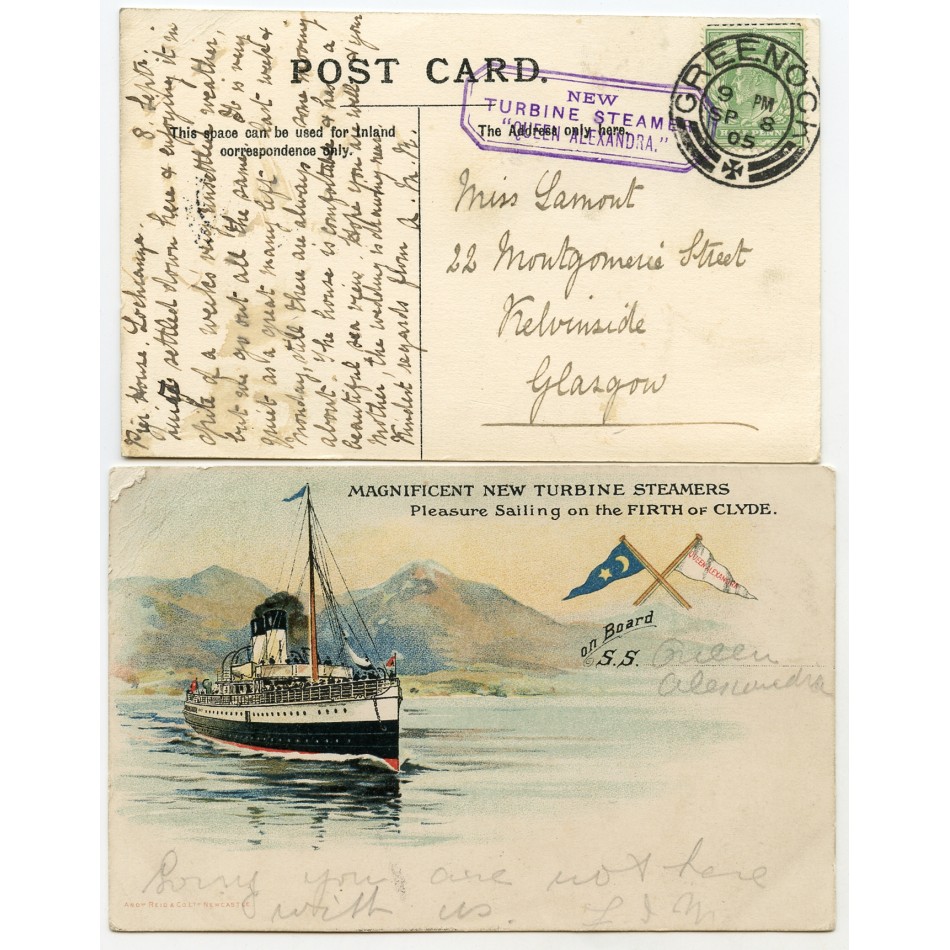 POST CARD.
This space can be used for Inland
correspondence only.
The Address only here.
NEW
TURBINE STEAME
"QUEEN ALEXANDRA."
GREENOCK
9 PM
SP 8
05
HALF PENNY
Pier House. Lochranza. 8 Sept.
settled down here & enjoying it in
spite of a weeks very unsettled weather,
but we go out all the same. It is very
quiet as a great many left last week &
Monday, still there are always some going
about. The house is comfortable & has a
beautiful sea view. Hope you are well & your
Mother, the wedding is drawing near.
Kindest regards from A. M. N.
Miss Lamont
22 Montgomerie Street
Kelvinside
Glasgow
MAGNIFICENT NEW TURBINE STEAMERS
Pleasure Sailing on the FIRTH OF CLYDE.
QUEEN ALEXANDRA
on Board
S.S. Queen
Alexandra
Sorry you are not here
with us.
ANDW REID & CO LTD NEWCASTLE